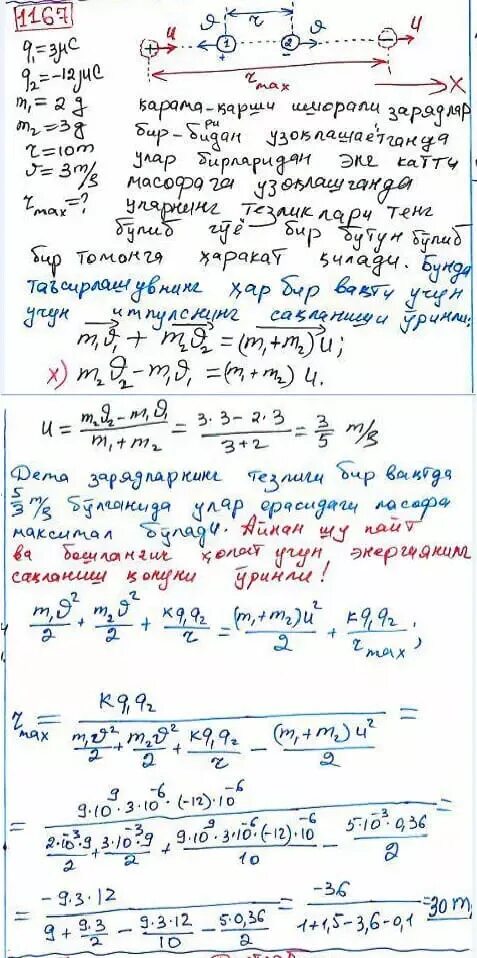 1167
u ϑ r ϑ u
+ 1 2 −
+ −
r_max X
q₁=3μC
q₂=-12μC
m₁=2g
m₂=3g
r=10m
ϑ=3 m/s
r_max=?
қарама-қарши ишорали зарядлар
бир-биридан узоқлашаётганда
улар бирларидан энг катта
масофага узоқлашганда
уларнинг тезликлари тенг
бўлиб гўё бир бутун бўлиб
бир томонга ҳаракат қилади. Бунда
таъсирлашувнинг ҳар бир вақти учун
учун импулснинг сақланиши ўринли:
m₁ϑ₁ + m₂ϑ₂ = (m₁+m₂)u;
x) m₂ϑ₂ - m₁ϑ₁ = (m₁+m₂) u.
u = (m₂ϑ₂ - m₁ϑ₁)/(m₁+m₂) = (3·3-2·3)/(3+2) = 3/5 m/s
Дема зарядларнинг тезлиги бир вақтда
5/3 m/s бўлганида улар орасидаги масофа
максимал бўлади. Айнан шу пайт
ва бошланғич ҳолат учун энергиянинг
сақланиш қонуни ўринли!
m₁ϑ²/2 + m₂ϑ²/2 + kq₁q₂/r = (m₁+m₂)u²/2 + kq₁q₂/r_max;
r_max = kq₁q₂/(m₁ϑ²/2 + m₂ϑ²/2 + kq₁q₂/r - (m₁+m₂)u²/2) =
= 9·10⁹·3·10⁻⁶·(-12)·10⁻⁶/(2·10⁻³·9/2 + 3·10⁻³·9/2 + 9·10⁹·3·10⁻⁶·(-12)·10⁻⁶/10 - 5·10⁻³·0,36/2) =
= -9·3·12/(9 + 9·3/2 - 9·3·12/10 - 5·0,36/2) = -36/(1+1,5-3,6-0,1) = 30m